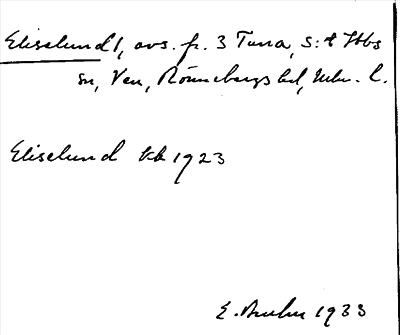 Eliselund 1, avs. fr. 3 Tuna, S:t Ibbs
sn, Ven, Rönnebergs hd, Mlm. l.
Eliselund kk 1923
E. Bruhn 1933